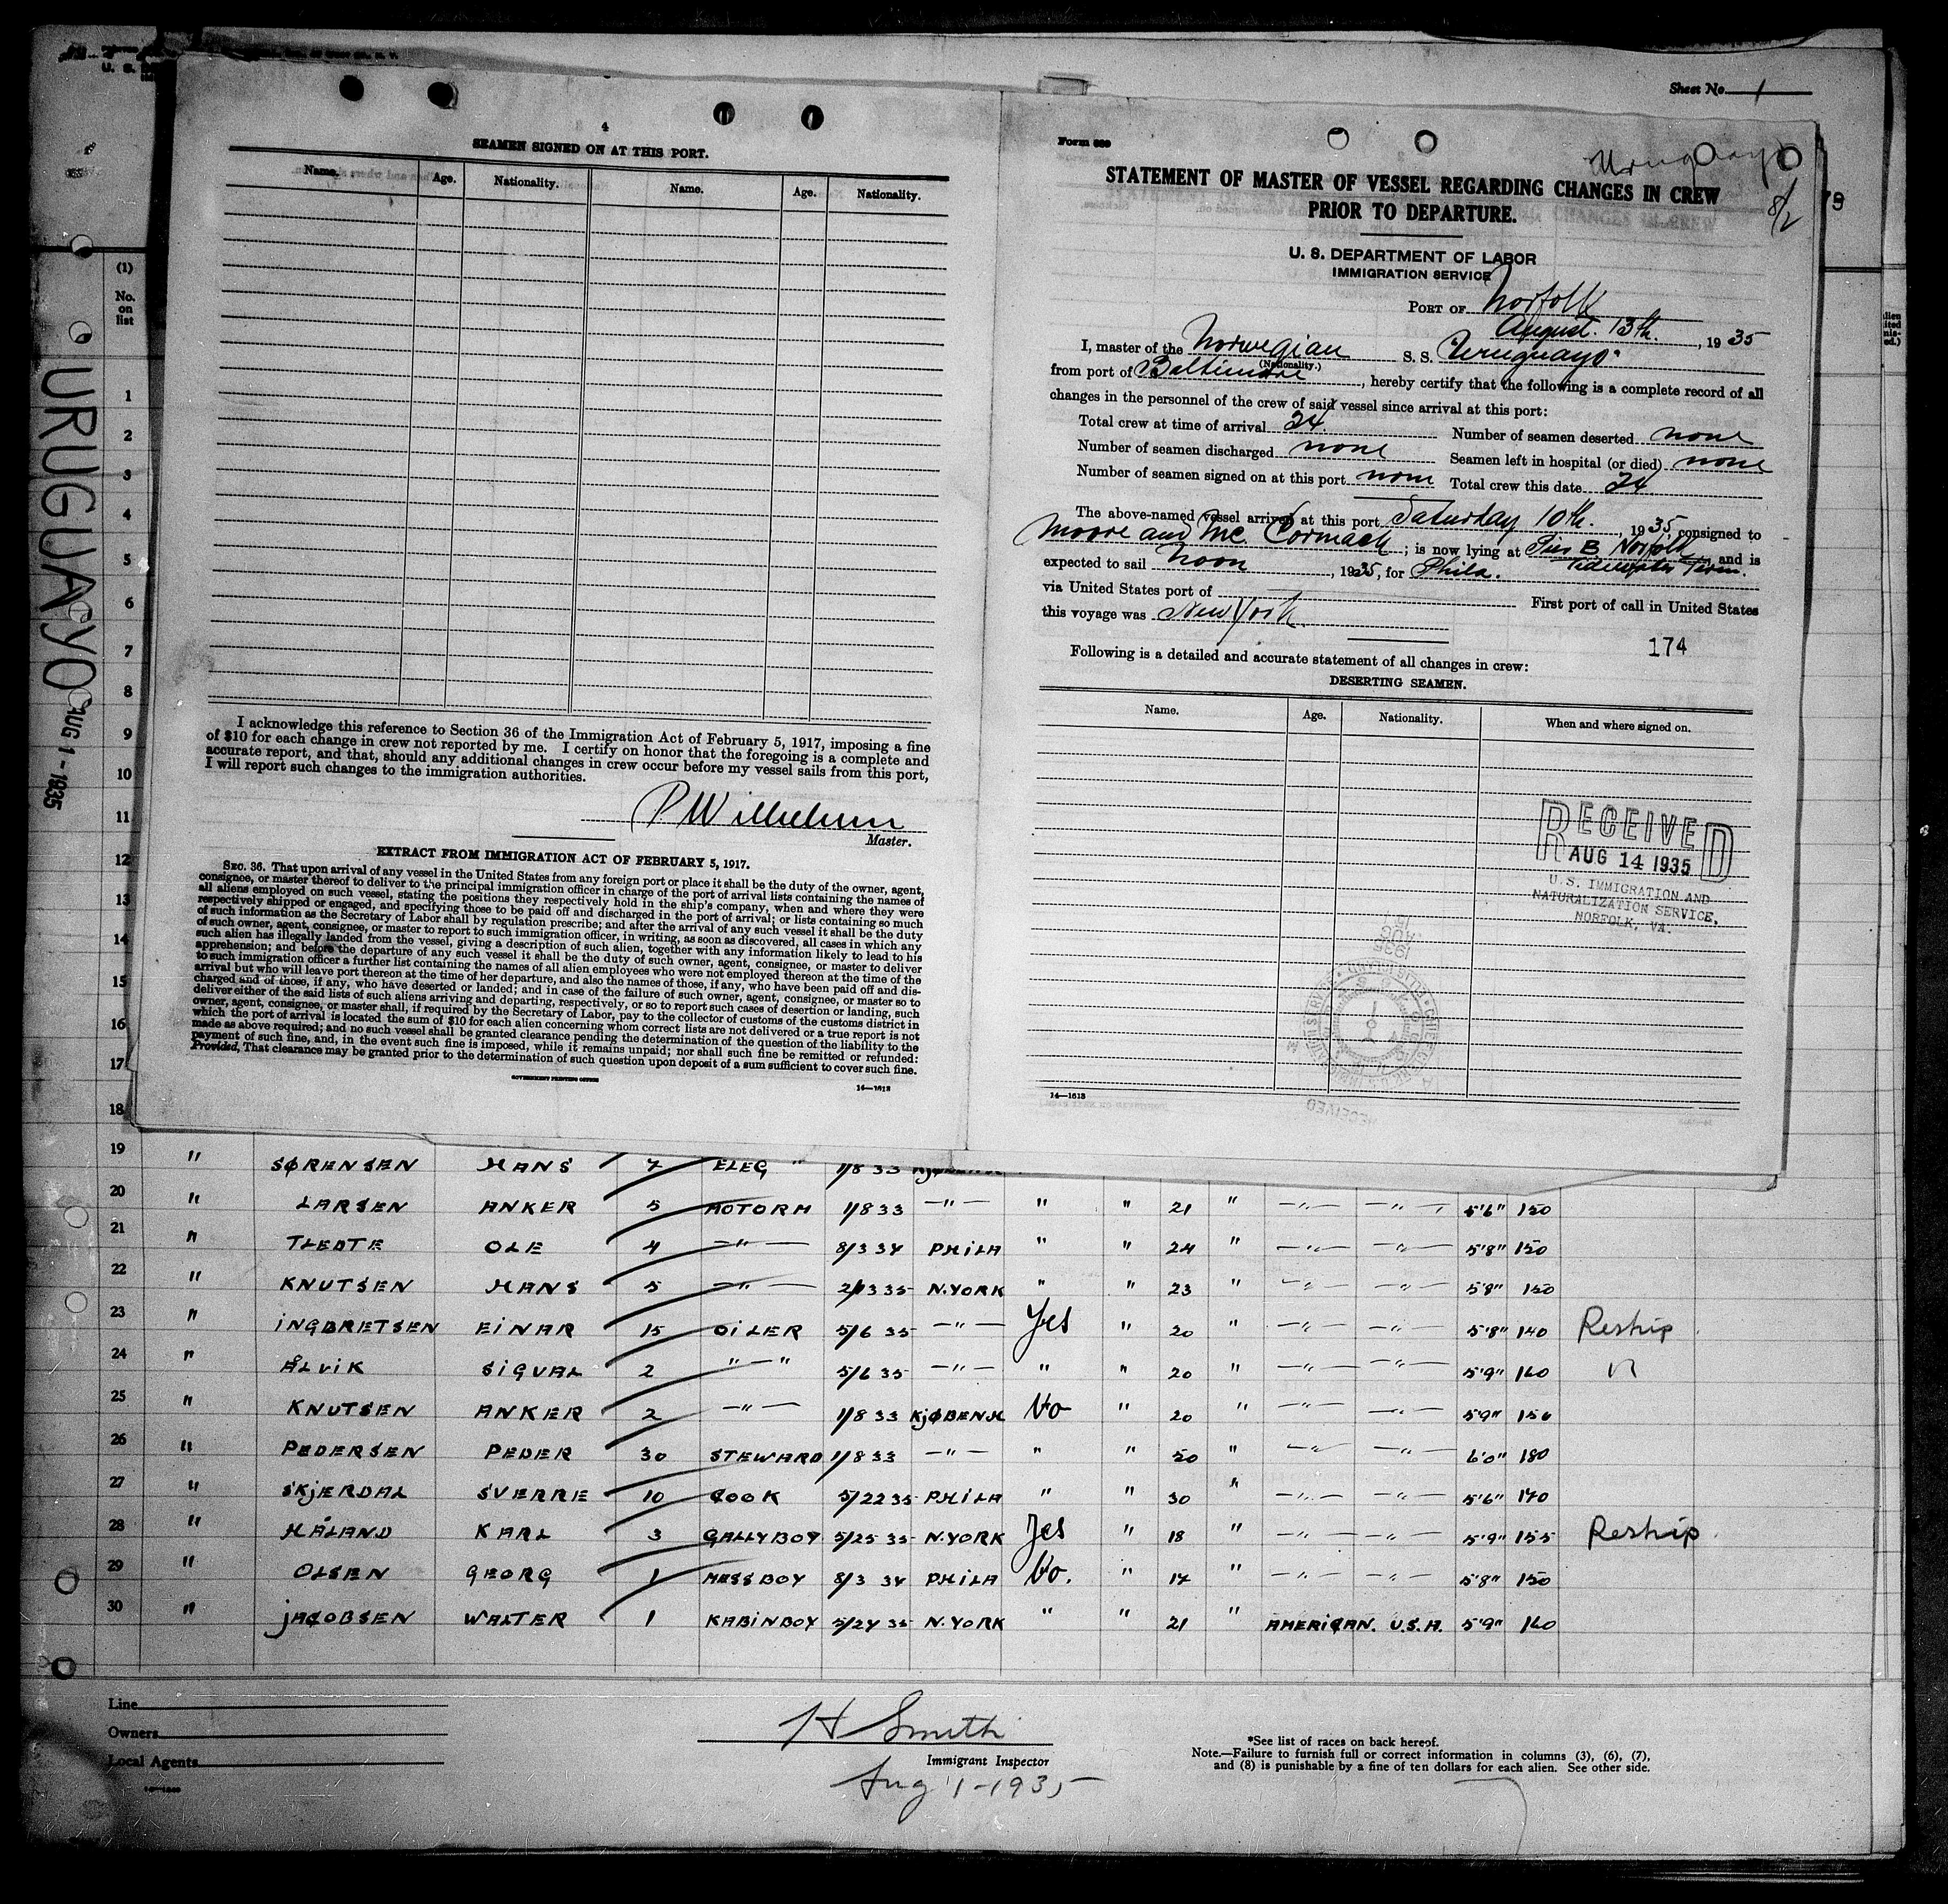 Sheet No. 1
4
SEAMEN SIGNED ON AT THIS PORT.
Name. Age. Nationality. Name. Age. Nationality.
I acknowledge this reference to Section 36 of the Immigration Act of February 5, 1917, imposing a fine
of $10 for each change in crew not reported by me. I certify on honor that the foregoing is a complete and
accurate report, and that, should any additional changes in crew occur before my vessel sails from this port,
I will report such changes to the immigration authorities.
Master.
EXTRACT FROM IMMIGRATION ACT OF FEBRUARY 5, 1917.
SEC. 36. That upon arrival of any vessel in the United States from any foreign port or place it shall be the duty of the owner, agent,
consignee, or master thereof to deliver to the principal immigration officer in charge of the port of arrival lists containing the names of
all aliens employed on such vessel, stating the positions they respectively hold in the ship's company, when and where they were
respectively shipped or engaged, and specifying those to be paid off and discharged in the port of arrival; or lists containing so much
of such information as the Secretary of Labor shall by regulation prescribe; and after the arrival of any such vessel it shall be the duty
of such owner, agent, consignee, or master to report to such immigration officer, in writing, as soon as discovered, all cases in which any
such alien has illegally landed from the vessel, giving a description of such alien, together with any information likely to lead to his
apprehension; and before the departure of any such vessel it shall be the duty of such owner, agent, consignee, or master to deliver
to such immigration officer a further list containing the names of all alien employees who were not employed thereon at the time of the
arrival but who will leave port thereon at the time of her departure, and also the names of those, if any, who have been paid off and dis-
charged and of those, if any, who have deserted or landed; and in case of the failure of such owner, agent, consignee, or master so to
deliver either of the said lists of such aliens arriving and departing, respectively, or so to report such cases of desertion or landing, such
owner, agent, consignee, or master shall, if required by the Secretary of Labor, pay to the collector of customs of the customs district in
which the port of arrival is located the sum of $10 for each alien concerning whom correct lists are not delivered or a true report is not
made as above required; and no such vessel shall be granted clearance pending the determination of the question of the liability to the
payment of such fine, and, in the event such fine is imposed, while it remains unpaid; nor shall such fine be remitted or refunded:
Provided, That clearance may be granted prior to the determination of such question upon deposit of a sum sufficient to cover such fine.
GOVERNMENT PRINTING OFFICE
14—1613
Form 689
Uruguayo
8/2
STATEMENT OF MASTER OF VESSEL REGARDING CHANGES IN CREW
PRIOR TO DEPARTURE.
U. S. DEPARTMENT OF LABOR
IMMIGRATION SERVICE
PORT OF Norfolk
August 13th, 1935
I, master of the Norwegian S. S. Uruguayo
(Nationality.)
from port of Baltimore, hereby certify that the following is a complete record of all
changes in the personnel of the crew of said vessel since arrival at this port:
Total crew at time of arrival 24 Number of seamen deserted none
Number of seamen discharged none Seamen left in hospital (or died) none
Number of seamen signed on at this port none Total crew this date 24
The above-named vessel arrived at this port Saturday 10th, 1935, consigned to
Moore and Mc Cormack; is now lying at Pier B Norfolk Tidewater Term., and is
expected to sail Noon, 1935, for Phila.
via United States port of First port of call in United States
this voyage was New York
174
Following is a detailed and accurate statement of all changes in crew:
DESERTING SEAMEN.
Name. Age. Nationality. When and where signed on.
RECEIVED
AUG 14 1935
U.S. IMMIGRATION AND
NATURALIZATION SERVICE,
NORFOLK, VA.
14—1613
URUGUAYO AUG 1 - 1935
(1)
No.
on
list
1
2
3
4
5
6
7
8
9
10
11
12
13
14
15
16
17
18
19 " SØRENSEN HANS 7 ELEG " 1/8 33
20 " LARSEN ANKER 5 MOTORM 1/8 33 —"— " " 21 " —"— —"— 5'6" 150
21 " OLE 4 —"— 8/3 34 PHILA " " 24 " —"— —"— 5'8" 150
22 " KNUTSEN HANS 5 —"— 2/13 35 N.YORK " " 23 " —"— —"— 5'8" 150
23 " INGBRETSEN EINAR 15 OILER 5/6 35 —"— Yes " 20 " —"— —"— 5'8" 140 Reship
24 " ÅLVIK SIGVAL 2 "—" 5/6 35 —"— " " 20 " —"— —"— 5'9" 160 "
25 " KNUTSEN ANKER 2 —"— 1/8 33 KJØBENH No " 20 " —"— —"— 5'9" 150
26 " PEDERSEN PEDER 30 STEWARD 1/8 33 —"— " " 50 " —"— —"— 6'0" 180
27 " SKJERDAL SVERRE 10 COOK 5/22 35 PHILA " " 30 " —"— —"— 5'6" 170
28 " HÅLAND KARL 3 GALLYBOY 5/25 35 N.YORK Yes " 18 " —"— —"— 5'9" 155 Reship
29 " OLSEN GEORG 1 MESSBOY 8/3 34 PHILA No. " 17 " —"— —"— 5'8" 150
30 " JACOBSEN WALTER 1 KABINBOY 5/24 35 N.YORK " " 21 " AMERICAN. U.S.A. 5'9" 160
Line
Owners
Local Agents
H Smith
Immigrant Inspector
Aug 1-1935
*See list of races on back hereof.
Note.—Failure to furnish full or correct information in columns (3), (6), (7),
and (8) is punishable by a fine of ten dollars for each alien. See other side.